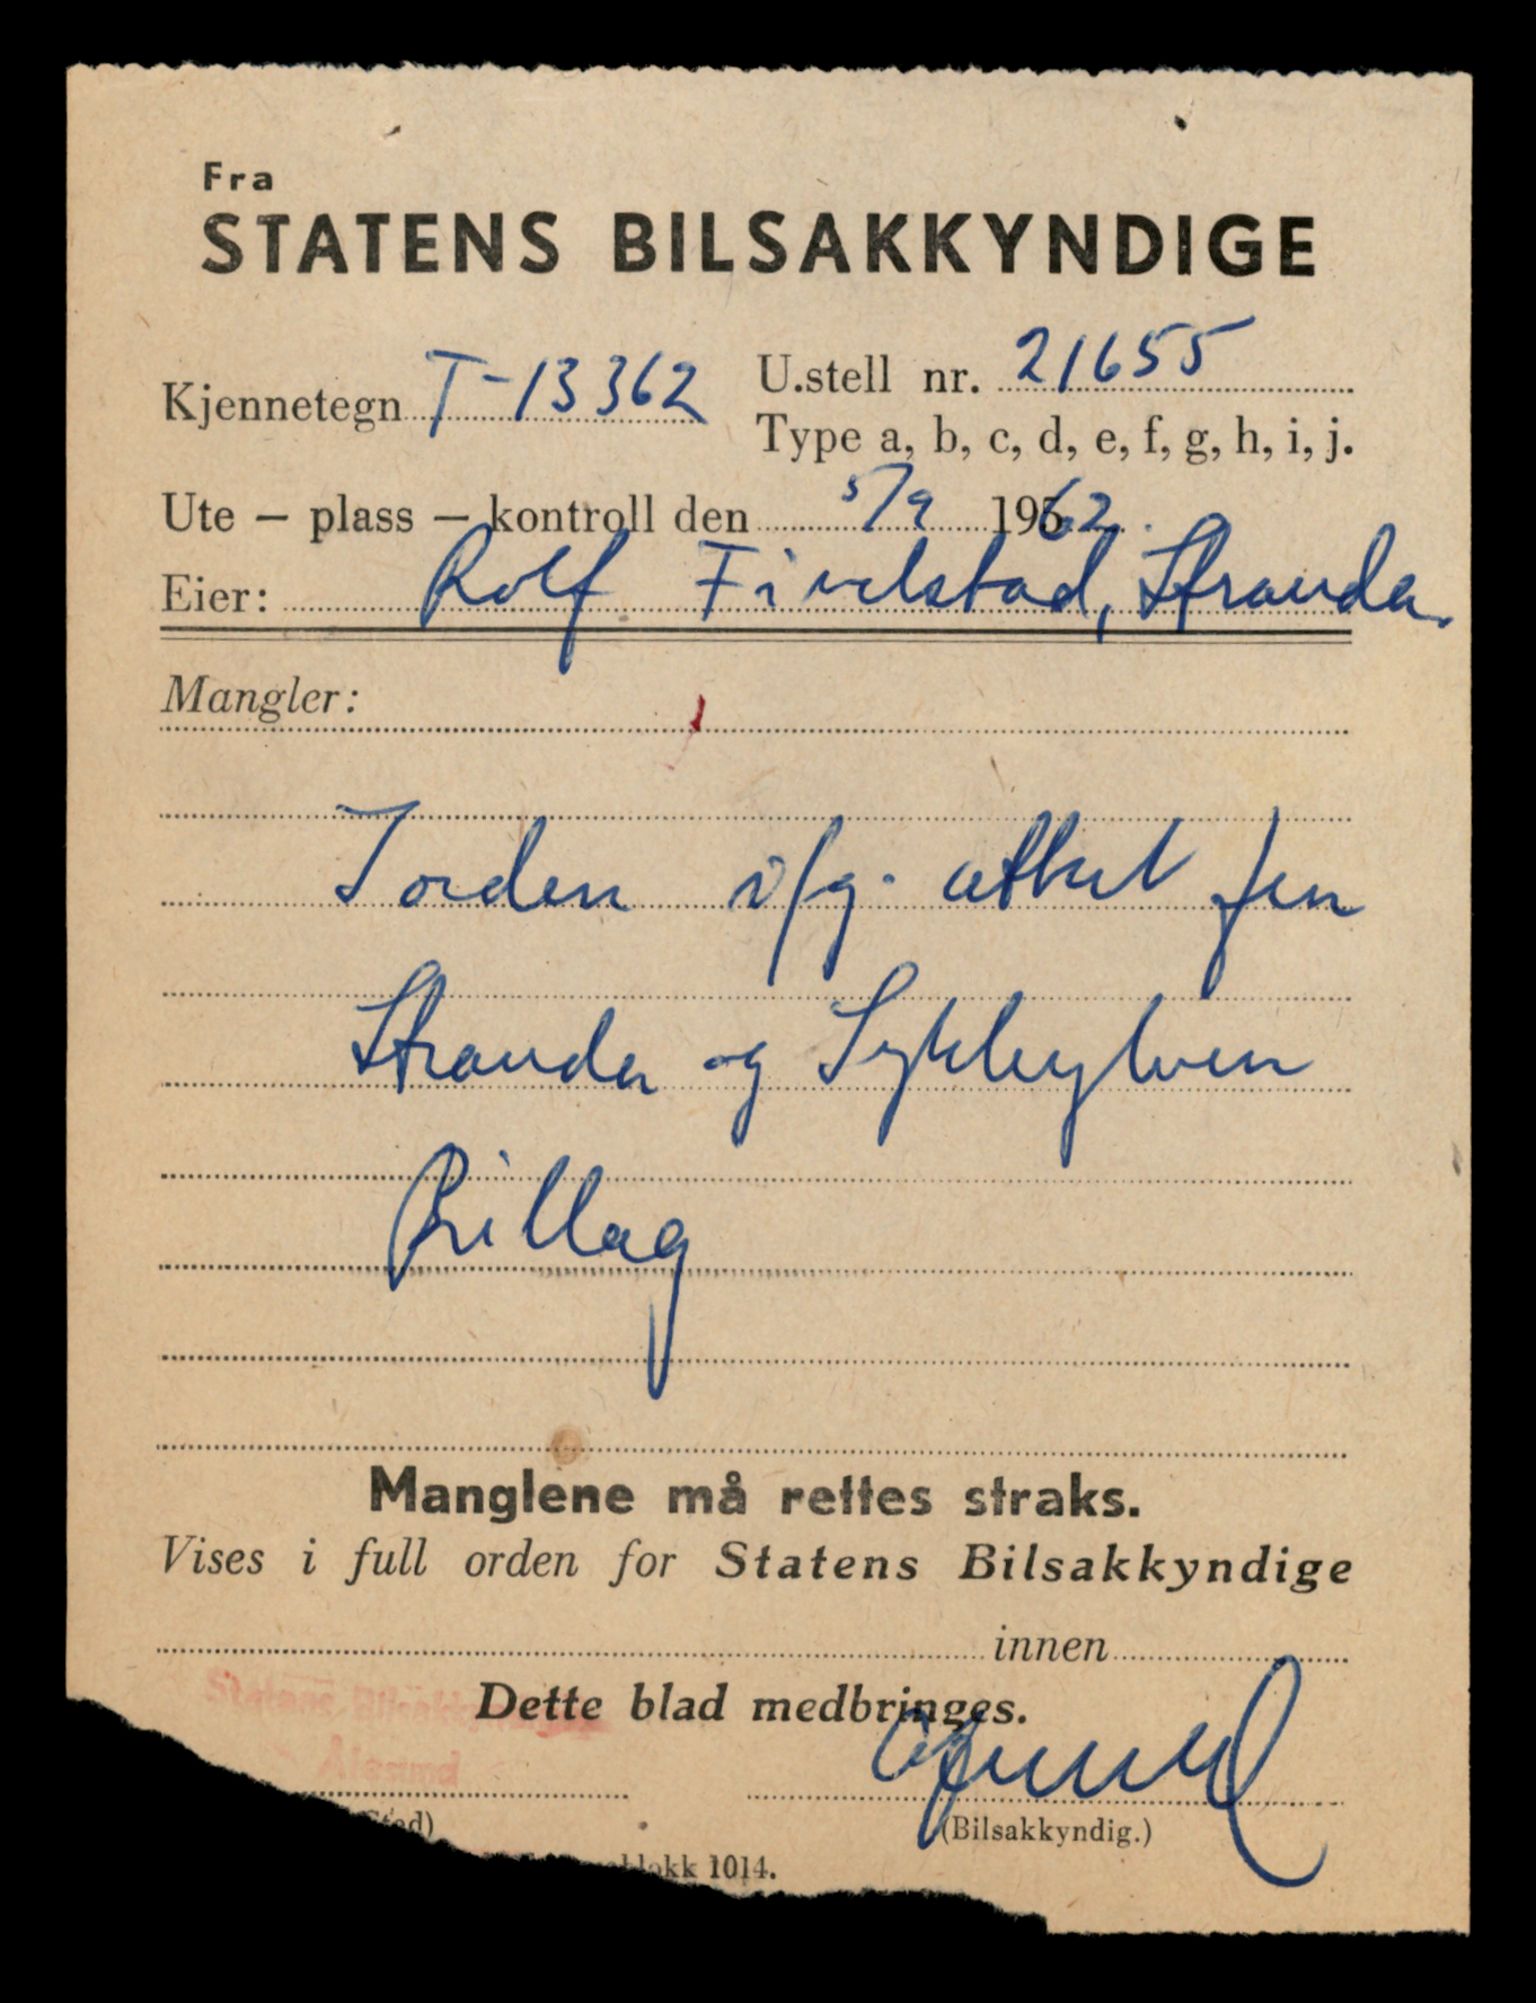 Fra
STATENS BILSAKKYNDIGE
Kjennetegn T-13362 U.stell nr. 21655
Type a, b, c, d, e, f, g, h, i, j.
Ute – plass – kontroll den 5/9 1962.
Eier: Rolf Fivelstad, Stranda.
Mangler:
Jorden i/g. attest fra
Stranda og Sykkylven
Billag
Manglene må rettes straks.
Vises i full orden for Statens Bilsakkyndige
innen
Statens Bilsakkyndige
Dette blad medbringes.
Ålesund
(Sted) (Bilsakkyndig.)
1014.